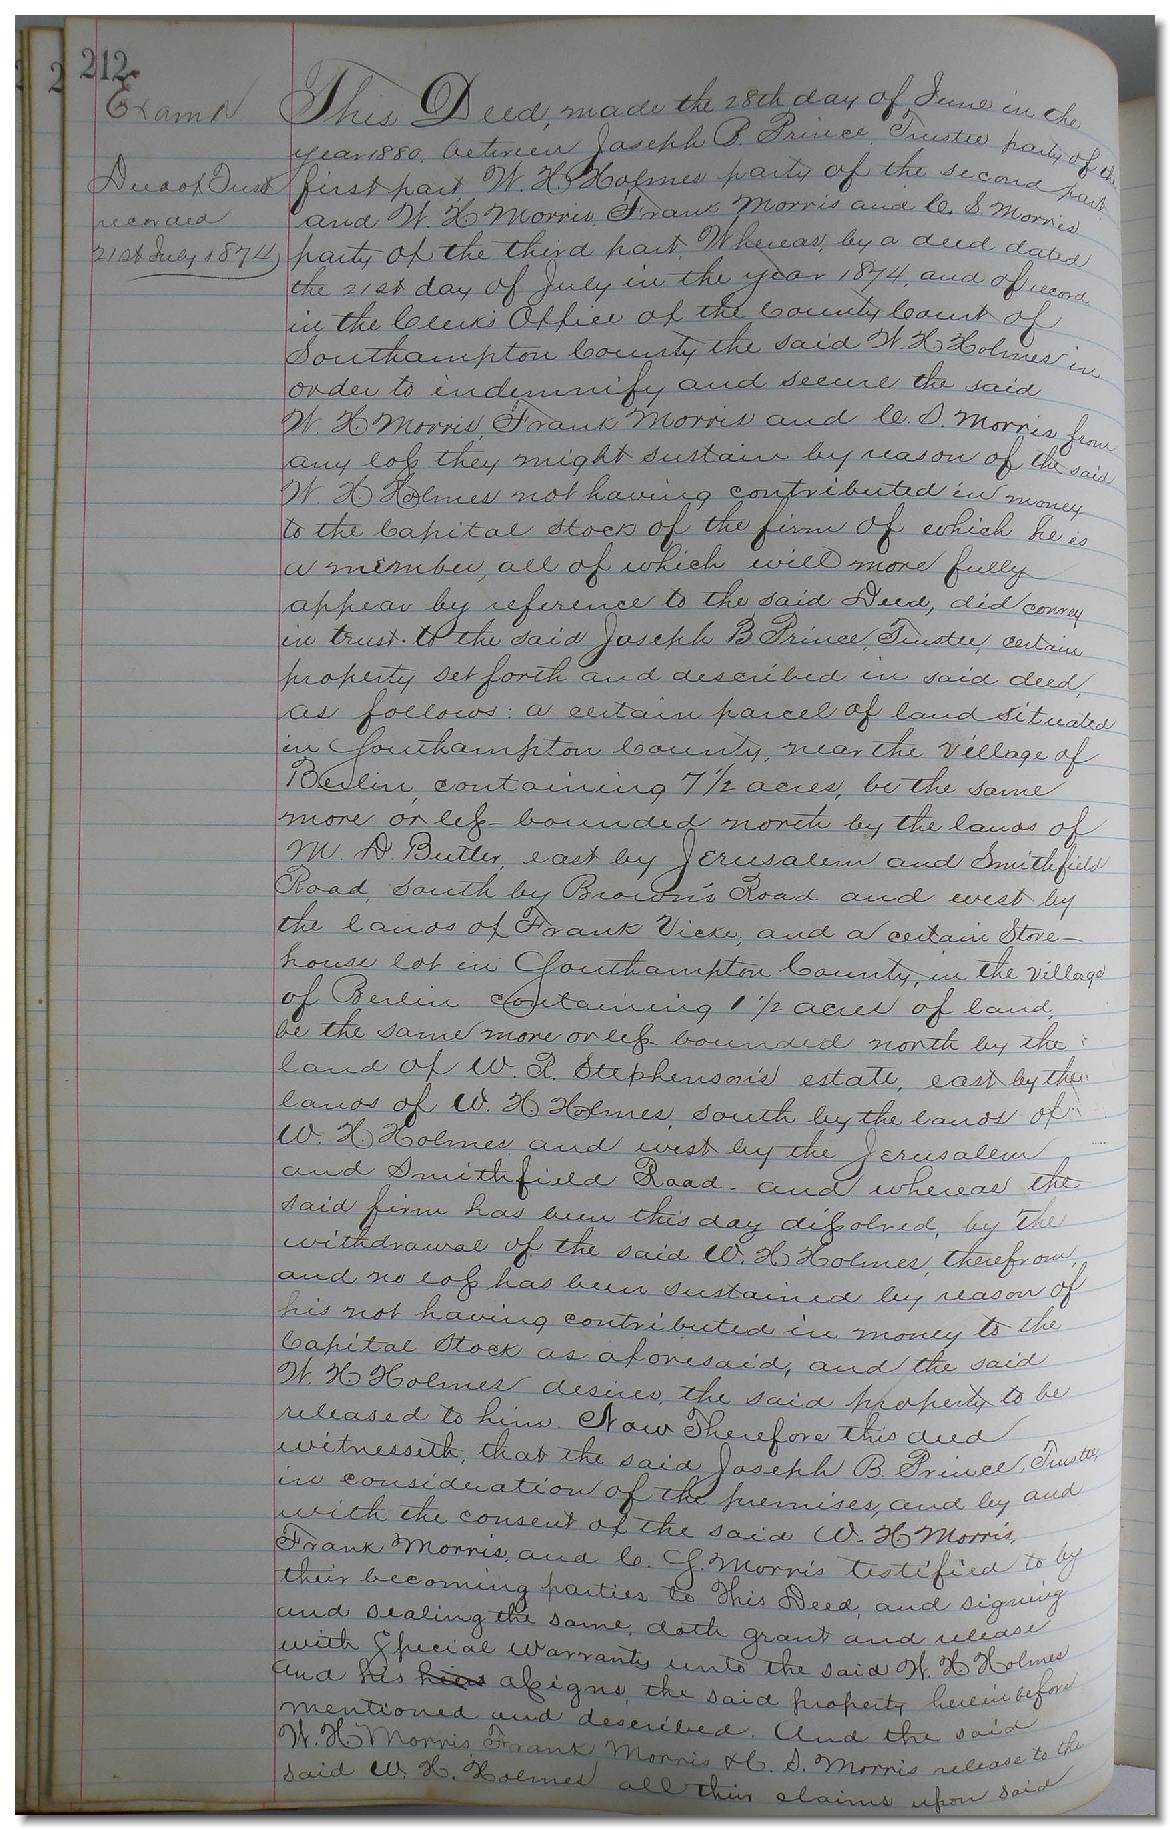 212
Exam'd
This Deed, made the 28th day of June in the
year 1880, between Joseph B. Prince, Trustee party of the
Deed of Trust
recorded
21st July 1874
first part W. H. Holmes party of the second part
and W. H. Morris, Frank Morris and C. S. Morris
party of the third part. Whereas, by a deed dated
the 21st day of July in the year 1874, and of record
in the Clerk's Office of the County Court of
Southampton County, the said W. H. Holmes in
order to indemnify and secure the said
W. H. Morris, Frank Morris and C. S. Morris from
any loss they might sustain by reason of the said
W. H. Holmes not having contributed in money
to the Capital stock of the firm of which he is
a member, all of which will more fully
appear by reference to the said Deed, did convey
in trust to the said Joseph B Prince, Trustee, certain
property set forth and described in said deed,
as follows: a certain parcel of land situated
in Southampton County, near the village of
Berlin, containing 7 1/2 acres, be the same
more or less bounded north by the lands of
M. D. Butler, east by Jerusalem and Smithfield
Road, south by Brown's Road and west by
the lands of Frank Vick, and a certain Store-
house lot in Southampton County, in the village
of Berlin containing 1 1/2 acres of land,
be the same more or less bounded north by the
land of W. R. Stephenson's estate, east by the
lands of W. H. Holmes, south by the lands of
W. H. Holmes and west by the Jerusalem
and Smithfield Road. and whereas the
said firm has been this day dissolved, by the
withdrawal of the said W. H. Holmes, therefrom,
and no loss has been sustained by reason of
his not having contributed in money to the
Capital Stock as aforesaid, and the said
W. H. Holmes desires, the said property to be
released to him. Now Therefore this deed
witnesseth, that the said Joseph B. Prince, Trustee,
in consideration of the premises, and by and
with the consent of the said W. H. Morris,
Frank Morris, and C. S. Morris testified to by
their becoming parties to this Deed, and signing
and sealing the same, doth grant and release
with Special Warranty unto the said W. H. Holmes
and his heirs assigns, the said property herein before
mentioned and described. And the said
W. H. Morris Frank Morris & C. S. Morris release to the
said W. H. Holmes all their claims upon said